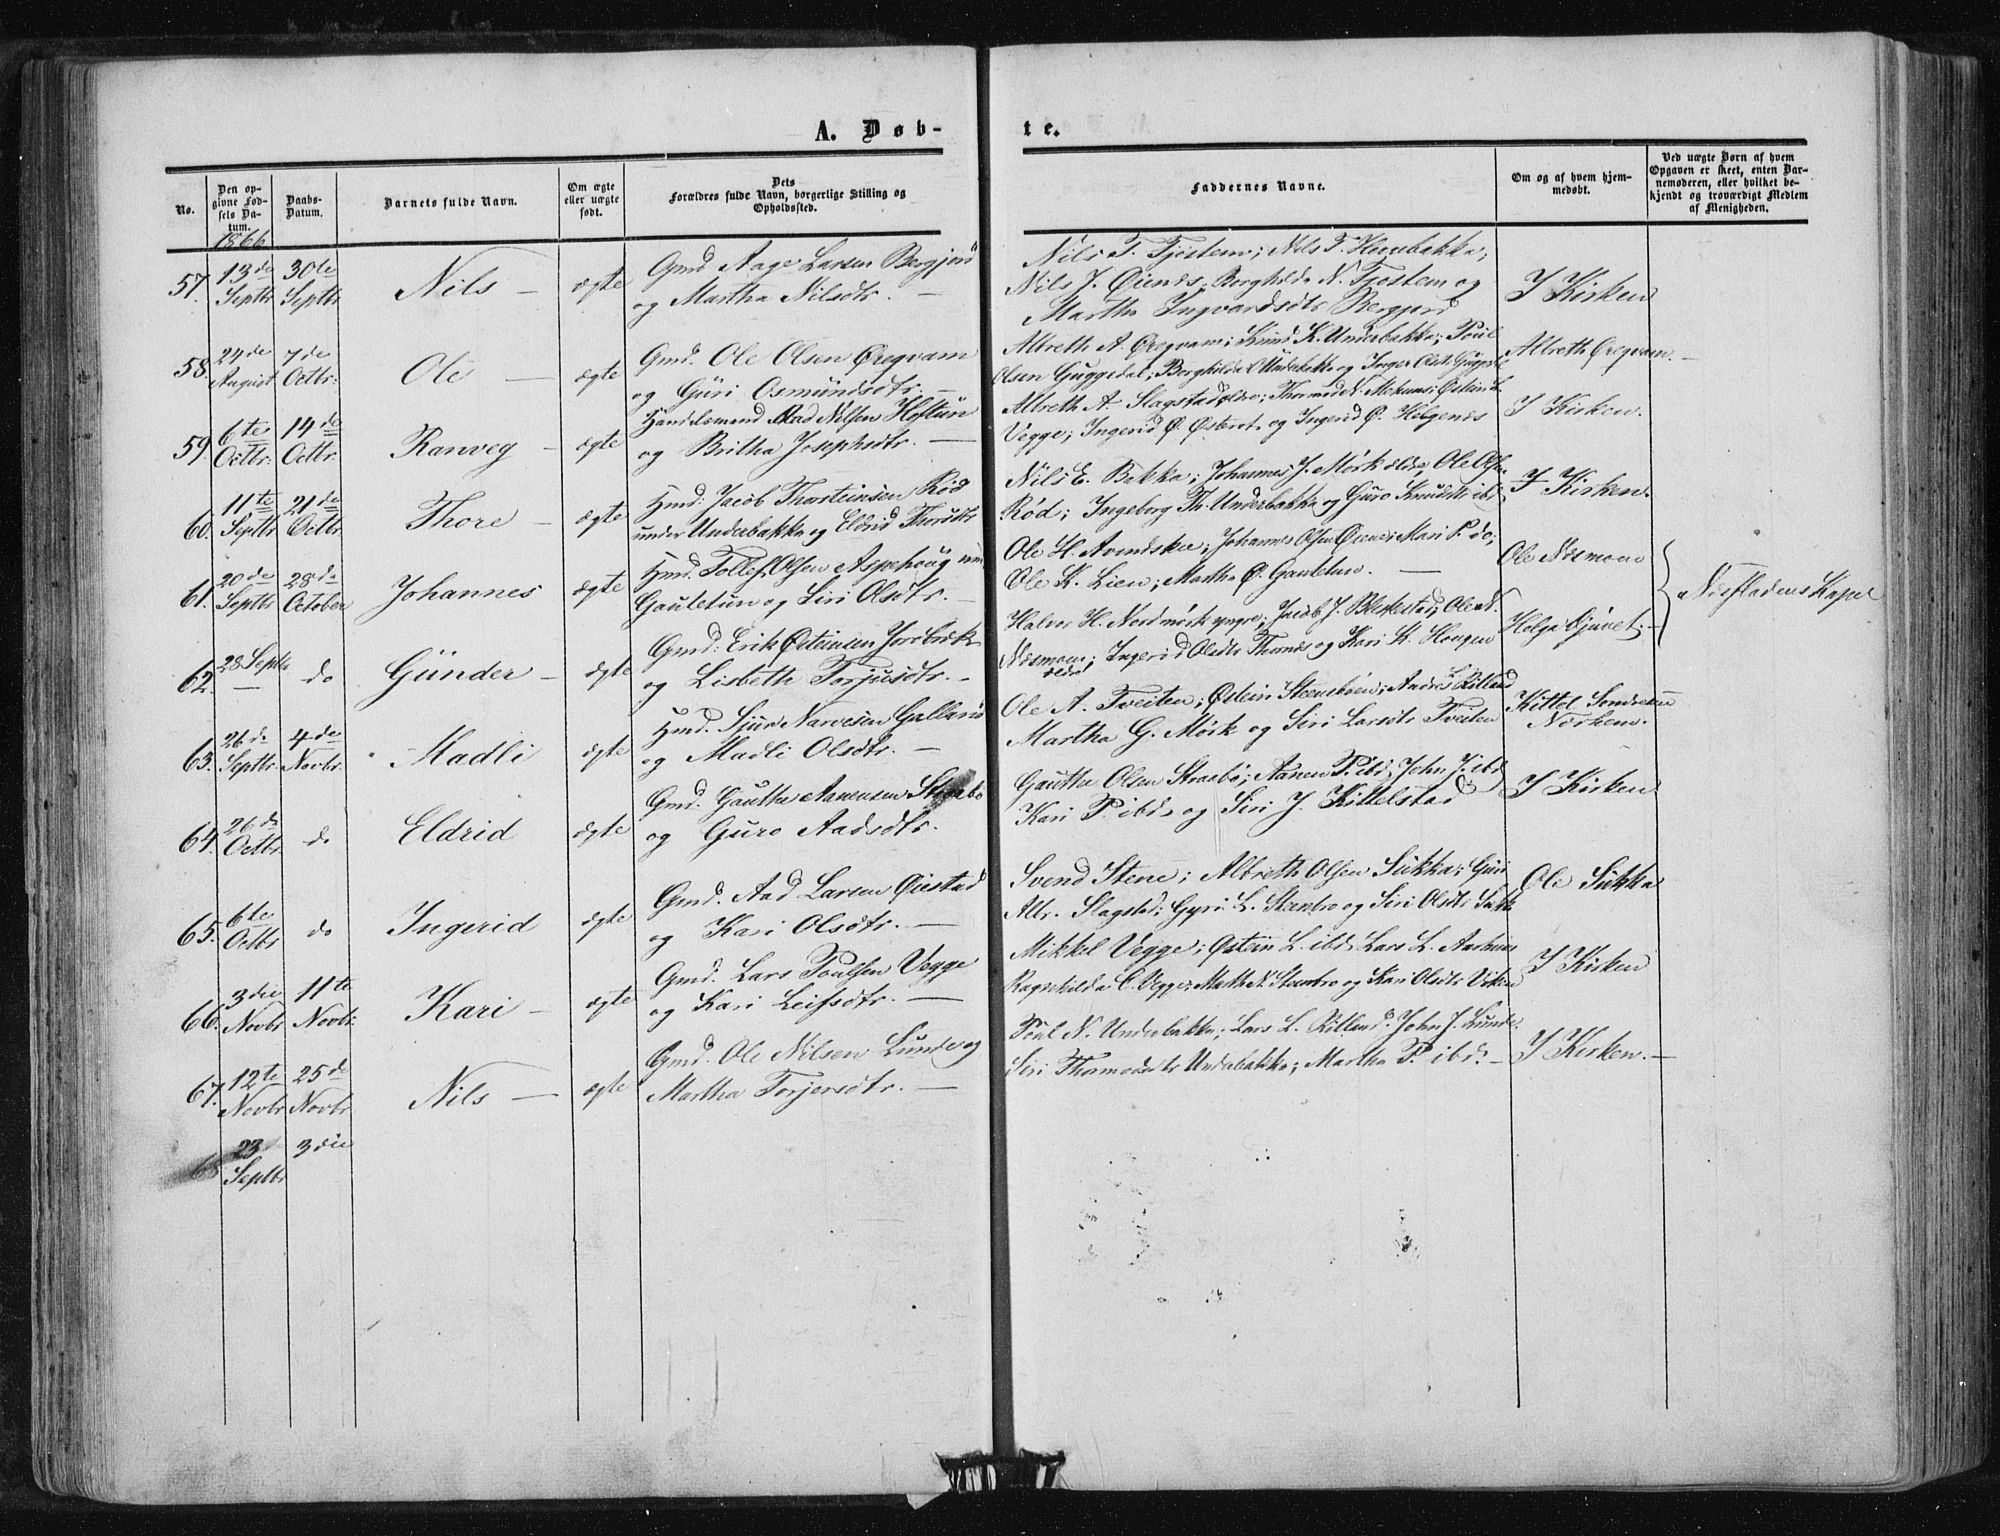 A. Døb-
te.
No.
Den opgivne Fødsels Datum.
Daabs-Datum.
Barnets fulde Navn.
Om ægte eller uægte født.
Dets Forældres fulde Navn, borgerlige Stilling og Opholdssted.
Faddernes Navne.
Om og af hvem hjemmedøbt.
Ved uægte Børn af hvem Opgaven er skeet, enten Barnemoderen, eller hvilket bekjendt og troværdigt Medlem af Menigheden.
1866
57. 13de Septbr 30te Septbr Nils — ægte
Gmd Aage Larsen
og Martha Nilsdtr. —
Nils T. Tjøstem; Nils T.
Nils J. Øiends; Borghilda N. Tjøstem og
Martha Ingvardsdtr Bergjord
I Kirken
58. 24de August 7de Octbr: Ole — ægte
Gmd. Ole Olsen Øregvam
og Guri Osmundsdtr. —
Albreth A. Øregvam; Knud K. Underbakka; Poul
Olsen Guggedal; Borghilda Underbakka og Inger Olsdtr
Albreth Øregvam. —
59. 6te Octbr. 14de Octbr. Ranveg — ægte
Handelsmand Aad Nilsen Hoftun
og Britha Josephsdtr. —
Albreth A. Slagstad ældre; Thormod N. Østein L.
Vegge; Ingerid Ø. og Ingerid Ø. Helgenes
I Kirken.
60. 11te Septbr 21de Octbr. Thore — ægte
Hmd. Jacob Thorsteinsen Rød
under Underbakka og Eldrid Thorsdtr
Nils E. Bakka; Johannes J. Mørk ældre, Ole Olsen
Rød; Ingeborg Th. Underbakka og Guro Knudsdtr ibd
I Kirken.
61. 20de Septbr 28de October Johannes ægte
Hmd. Tollef Olsen Aspehoug
Gauletun og Siri Olsdtr. —
Ole H. Johannes Olsen Mari P. do;
Ole K. Lien; Martha Ø. Gauletun. —
Ole Næsmoen
Næsfladens Kapel
62. 28 Septr — do Günder — ægte
Gmd. Erik Østeinsen
og Lisbeth Torjusdtr. —
Halvor H. Nordmork yngre; Jacob J. Ole N.
Næsmoen ældre; Ingerid Olsdtr og Kari K. Haugen
Helga Djuvet. —
63. 26de Septbr. 4de Novbr. Madli ægte
Hmd. Sjur Narvesen
og Madli Olsdtr. —
Ole A. Tveiten; Østein Andres L. Rilland
Martha G. Mørk og Siri Larsdtr Tveiten
Kittel Søndrenæs Norheim.
64. 26de Octbr. do Eldrid ægte
Gmd. Gauthe Aanensen Straabø
og Guro Aadsdtr.
Gauthe Olsen Straabø; Aanen P. ibd; John J. ibd
Kari P. ibd, og Siri J. Kittelstad
I Kirken
65. 6te Octbr do Ingerid ægte
Gmd. Aad Larsen Øiestad
og Kari Olsdtr. —
Svend Stene; Albreth Olsen Sukka; Guri
Albr. Slagstad; Gyri L. Steenbro og Siri Olsdtr Sukka
Ole Sukka
66. 3die Novbr 11te Novbr. Kari — ægte
Gmd. Lars Poulsen Vegge
og Kari Leifsdtr. —
Mikkel Vegge; Østein L. ibd, Lars L. Aarhuus
Ragnhilda C. Vegge, N. Steenbro og Kari Olsdtr
I Kirken
67. 12te Novbr 25de Novbr Nils — ægte
Gmd. Ole Nilsen Lunde og
Martha Torjersdtr. —
Poul N. Underbakka; Lars L. Rilland. John J. Lunde.
Siri Thormodsdtr Underbakka; Martha P. ibd. —
I Kirken. —
68 23 Septbr 3die